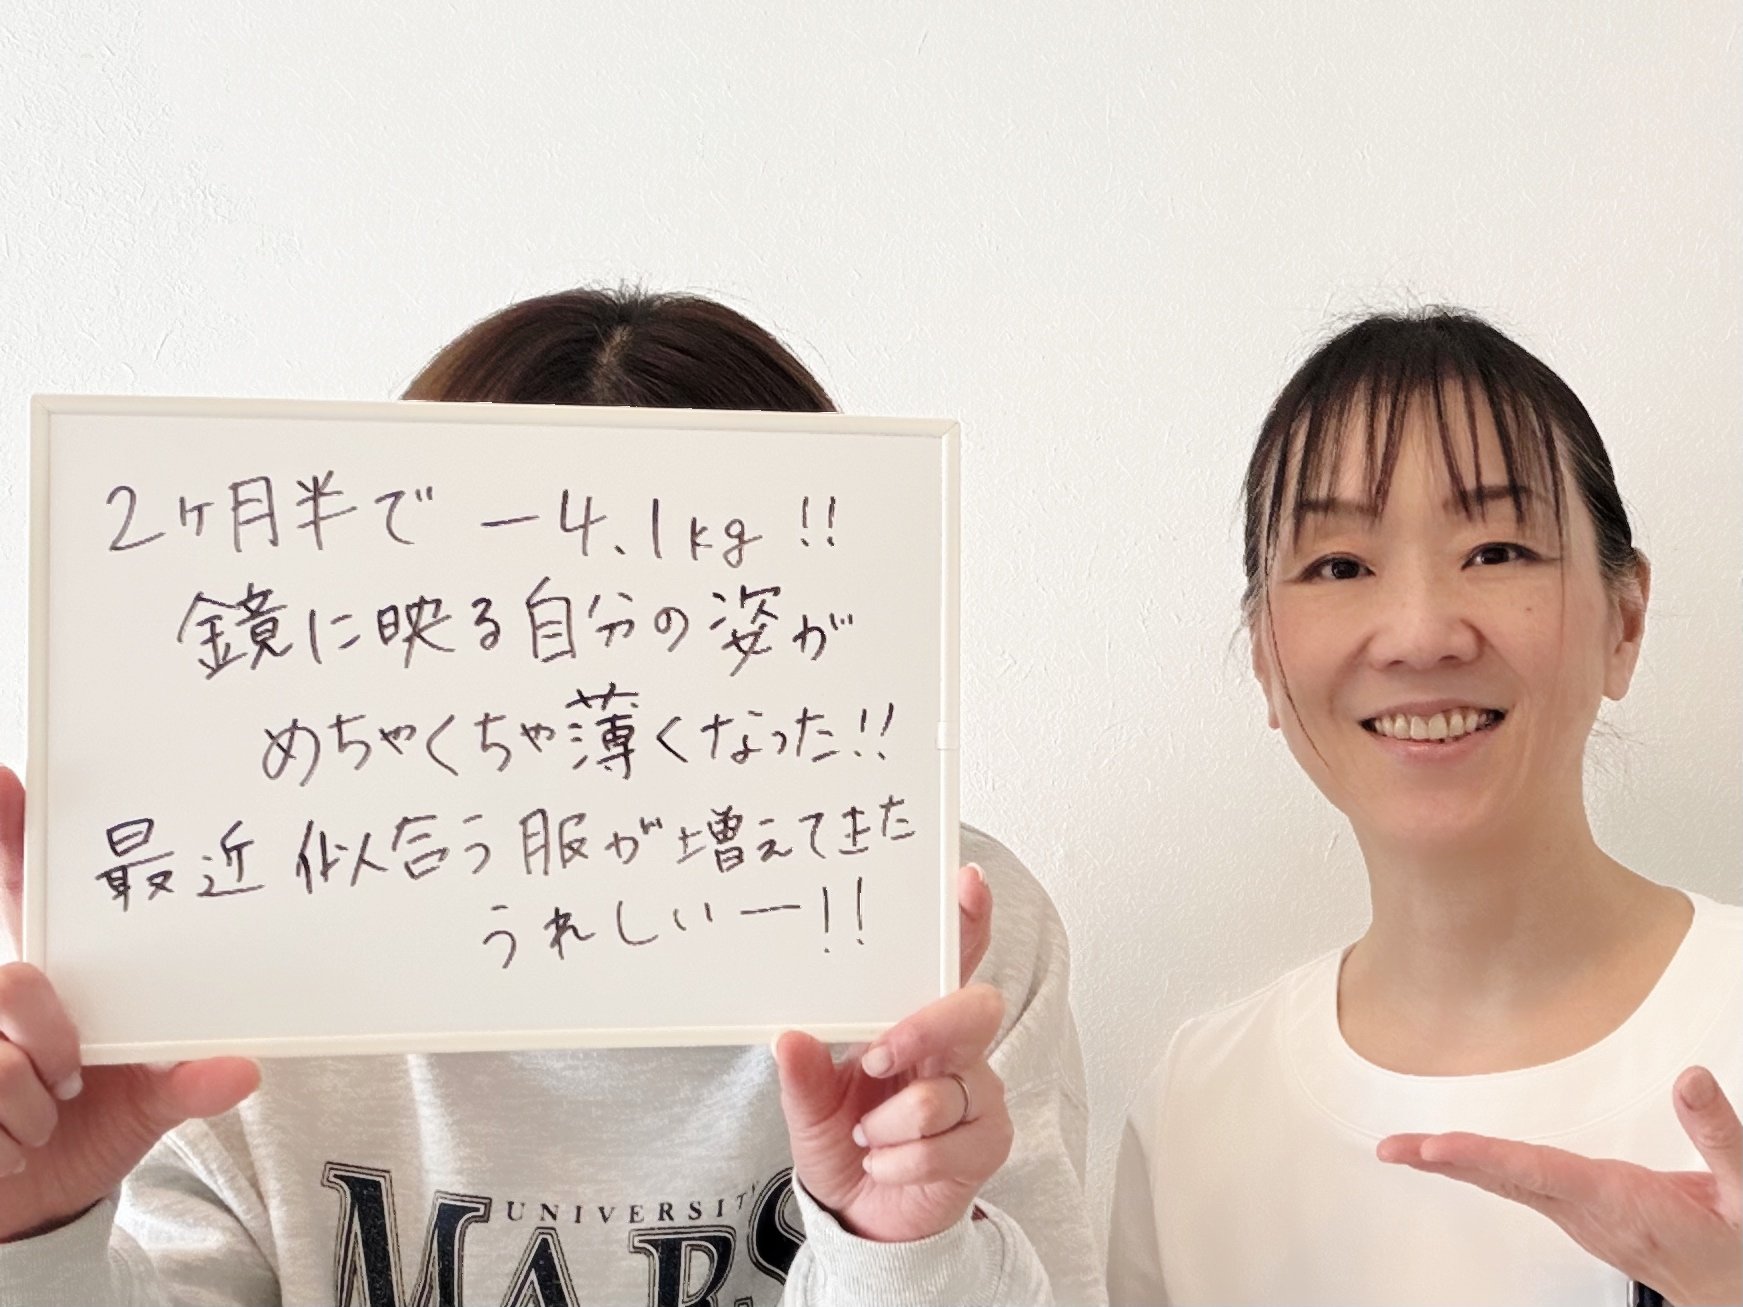 2ヶ月半で －4.1kg!!
鏡に映る自分の姿が
めちゃくちゃ薄くなった!!
最近 似合う服が増えてきた
うれしいー!!
UNIVERSITY